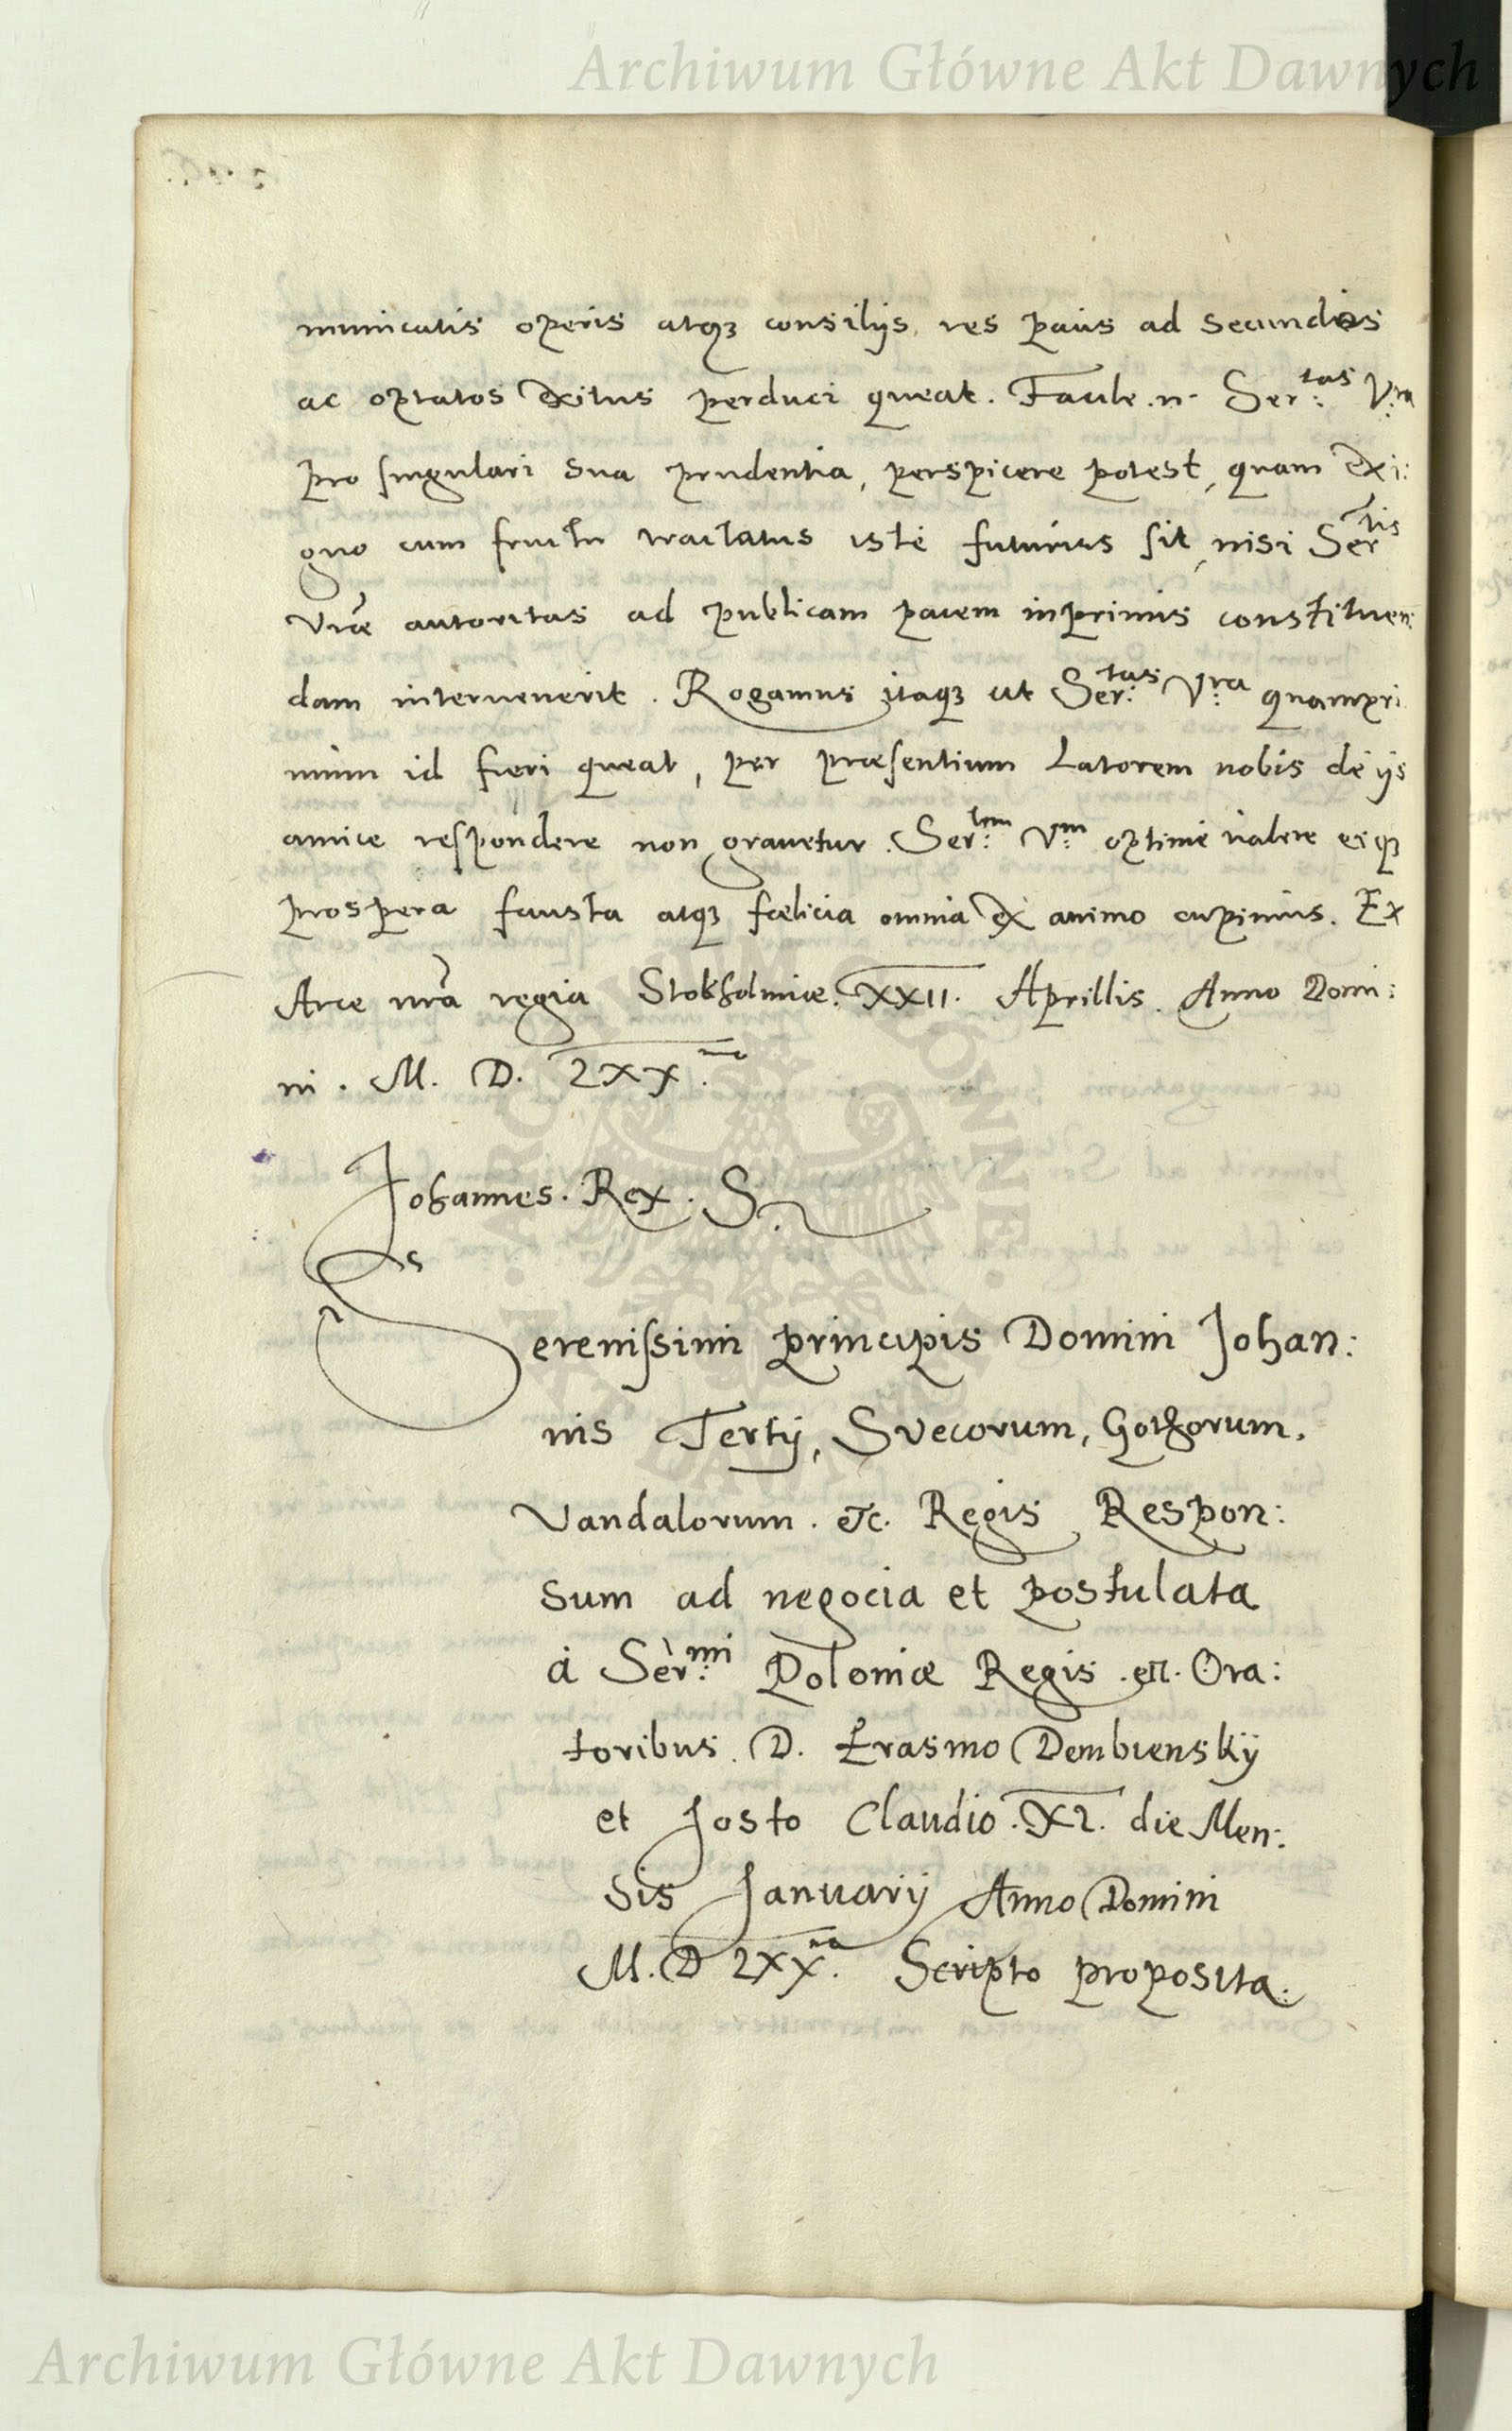 Archiwum Główne Akt Dawnych
municatis operis atq₃ consilijs, res pacis ad secundos
ac optatos exitus perduci queat. Facile .n. Ser:tas V:ra
pro singulari sua prudentia, perspicere potest, quam exi:
guo cum fructu tractatus iste futurus sit, nisi Sertis
Vræ autoritas ad publicam pacem inprimis constituen:
dam intervenerit. Rogamus itaq₃ ut Ser:tas V:ra quampri
mum id fieri queat, per præsentium Latorem nobis de ijs
amice respondere non gravetur. Ser:tem V:m optime valere eiq₃
prospera fausta atq₃ fœlicia omnia ex animo cupimus. Ex
Arce nrã regia Stokholmiæ. XXII. Aprillis. Anno Domi:
ni. M. D. LXX.mo
Johannes. Rex. S.
Serenissimi principis Domini Johan:
nis Tertij, Svecorum, Gothorum,
Vandalorum. etc. Regis Respon:
sum ad negocia et postulata
à Ser:mi Poloniæ Regis .etc. Ora:
toribus. D. Erasmo Dembiensky
et Josto Claudio. XI. die Men:
sis Januarij Anno Domini
M. D LXX.mo Scripto proposita.
ARCHIWUM GŁÓWNE AKT DAWNYCH
Archiwum Główne Akt Dawnych